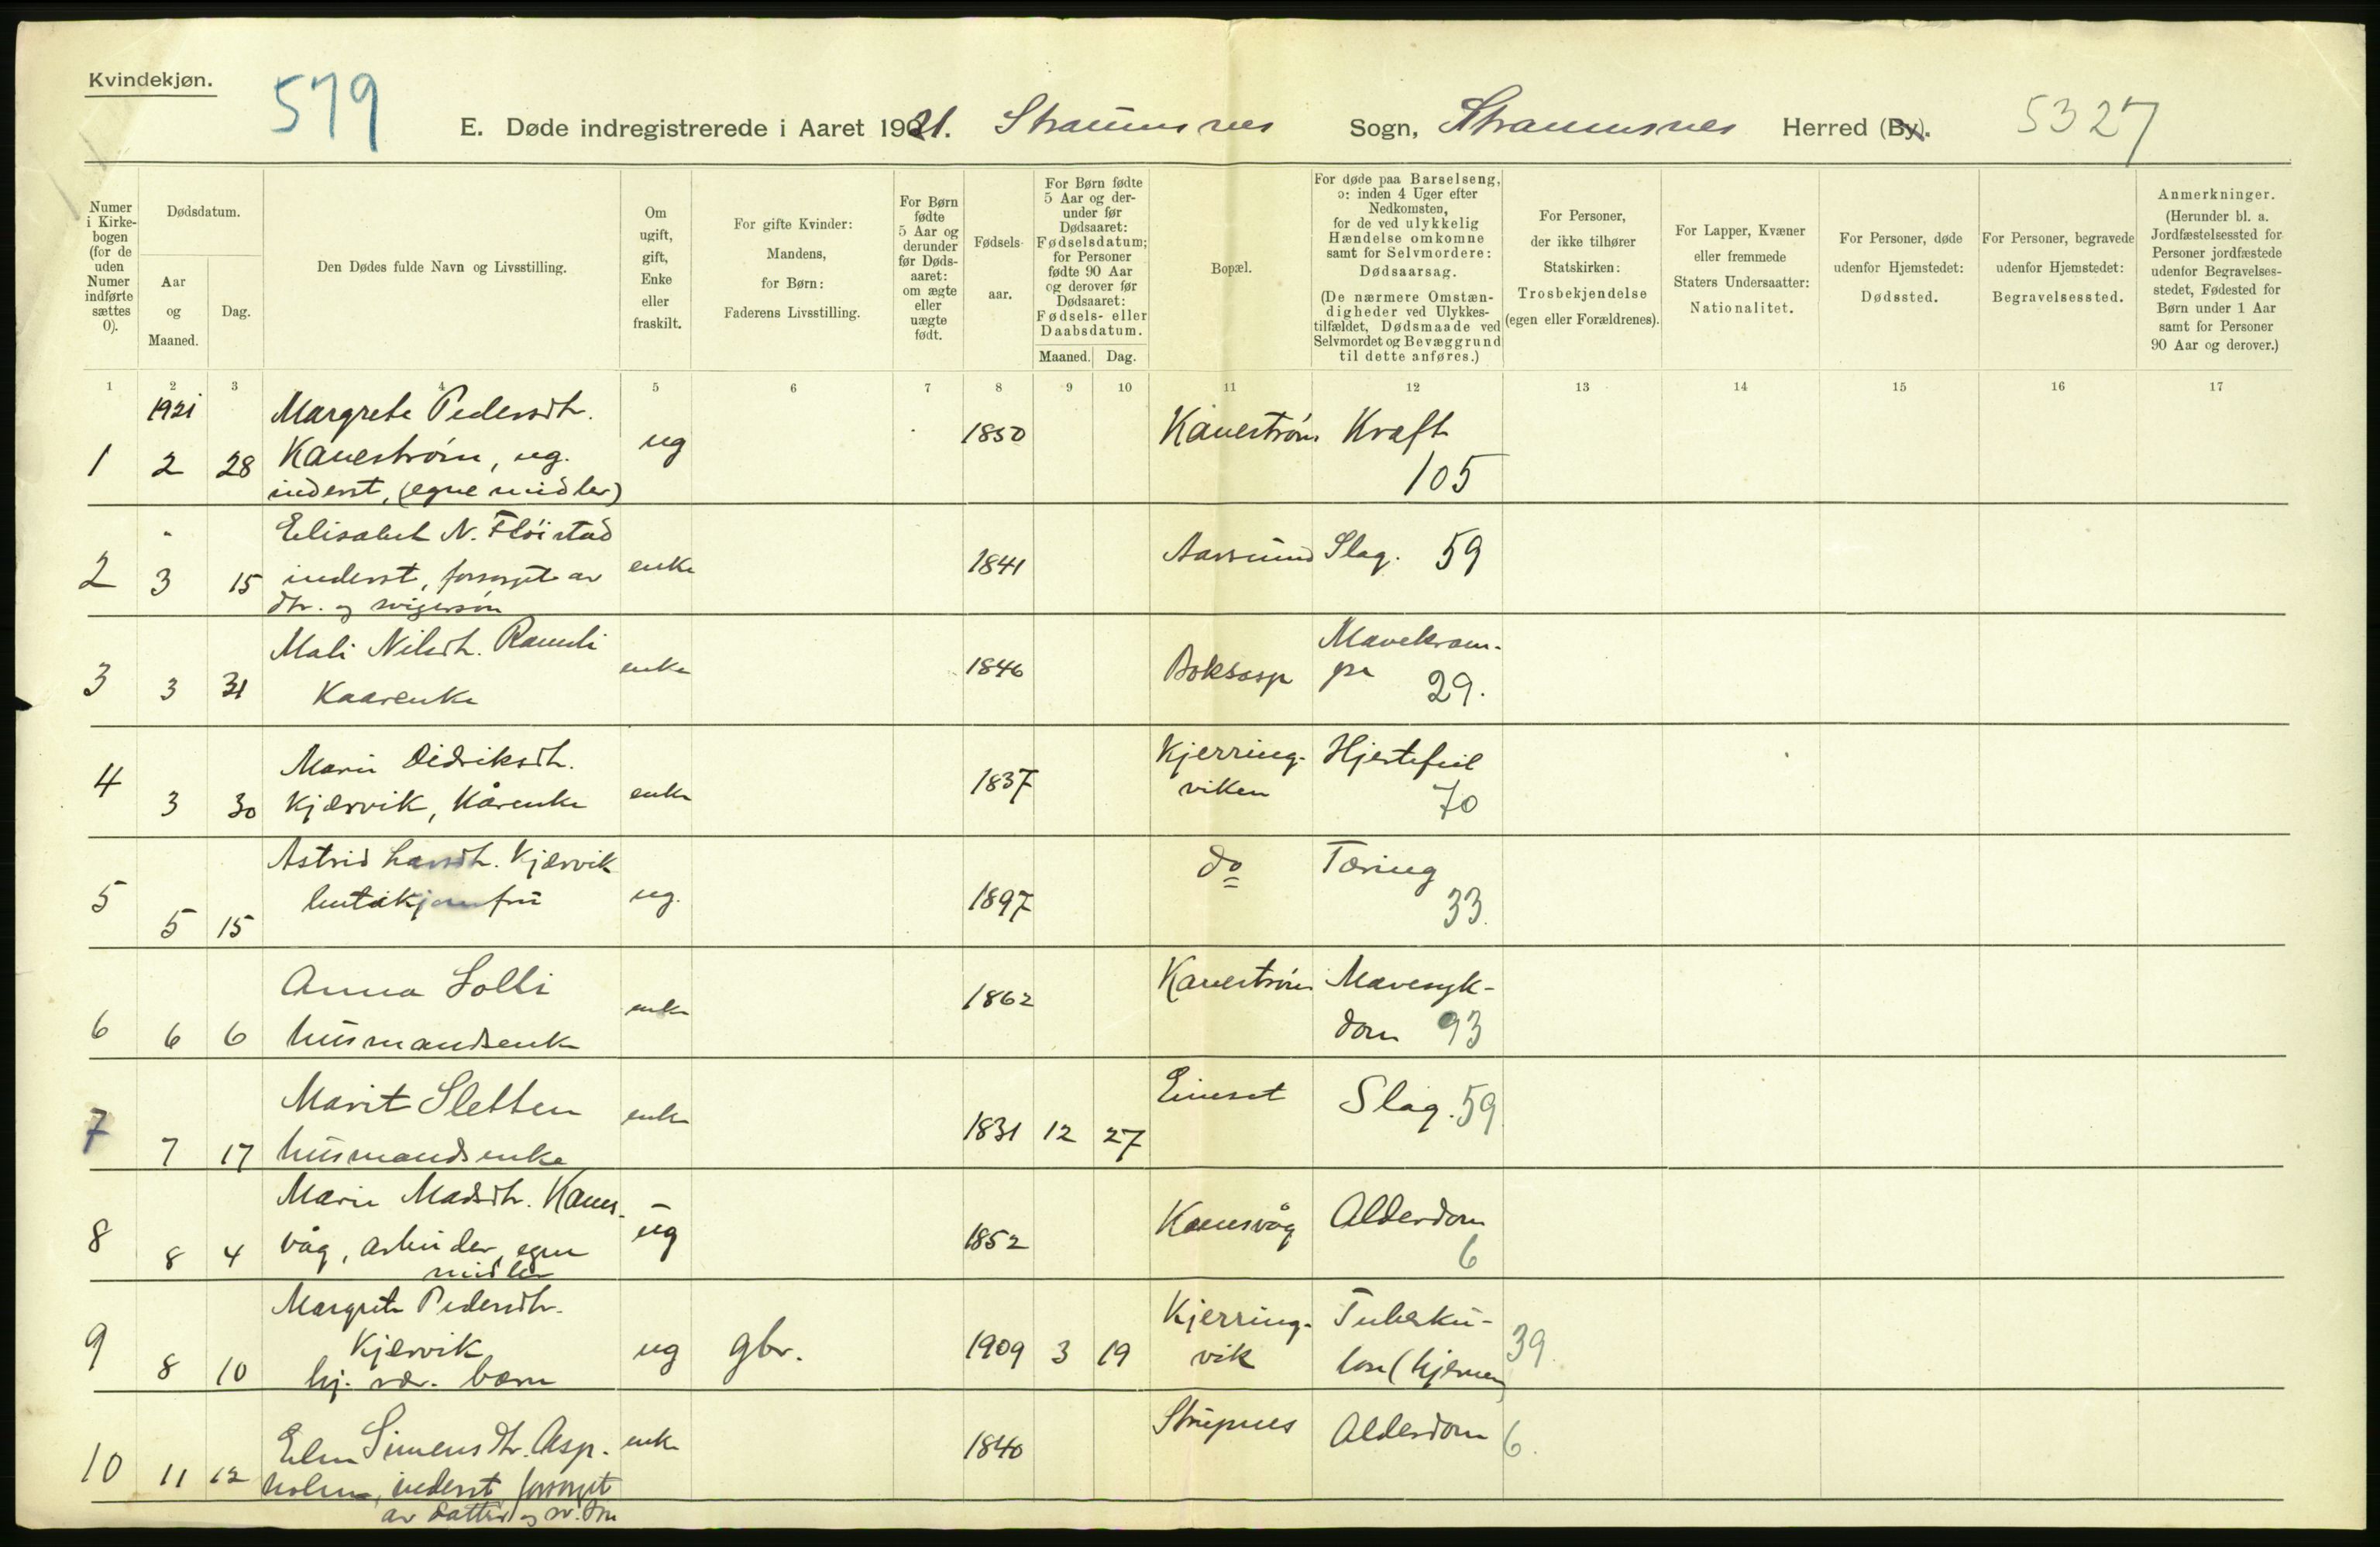 Kvindekjøn.
579
E. Døde indregistrerede i Aaret 1921. Straumsnes Sogn, Straumsnes Herred (By). 5327
Numer i Kirkebogen (for de uden Numer indførte sættes 0).
Dødsdatum.
Aar og Maaned.
Dag.
Den Dødes fulde Navn og Livsstilling.
Om ugift, gift, Enke eller fraskilt.
For gifte Kvinder: Mandens, for Børn: Faderens Livsstilling.
For Børn fødte 5 Aar og derunder før Dødsaaret: om ægte eller uægte født.
Fødselsaar.
For Børn fødte 5 Aar og derunder før Dødsaaret: Fødselsdatum; for Personer fødte 90 Aar og derover før Dødsaaret: Fødsels- eller Daabsdatum.
Maaned. Dag.
Bopæl.
For døde paa Barselseng, ɔ: inden 4 Uger efter Nedkomsten, for de ved ulykkelig Hændelse omkomne samt for Selvmordere: Dødsaarsag.
(De nærmere Omstændigheder ved Ulykkestilfældet, Dødsmaade ved Selvmordet og Bevæggrund til dette anføres.)
For Personer, der ikke tilhører Statskirken: Trosbekjendelse (egen eller Forældrenes).
For Lapper, Kvæner eller fremmede Staters Undersaatter: Nationalitet.
For Personer, døde udenfor Hjemstedet: Dødssted.
For Personer, begravede udenfor Hjemstedet: Begravelsessted.
Anmerkninger.
(Herunder bl. a. Jordfæstelsessted for Personer jordfæstede udenfor Begravelsesstedet, Fødested for Børn under 1 Aar samt for Personer 90 Aar og derover.)
1 2 3 4 5 6 7 8 9 10 11 12 13 14 15 16 17
1921 Margrete Pedersdtr.
1 2 28 Kanestrøm, ug. ug 1850 Kanestrøm Kraft
inderst, (egne midler) 105
" Elisabet N. Fløistad
2 3 15 inderst, forsørget av enke 1841 Aarsund Slag. 59
dtr. og svigersøn
Mali Nilsdtr. Ramsli Mavekram-
3 3 31 Kaarenke enke 1846 Boksasp pe 29.
Marie Didriksdtr. Kjerring- Hjertefeil
4 3 30 Kjærvik, Kårenke enke 1837 viken 70
Astrid Larsdtr. Kjærvik do Tæring
5 5 15 butikjomfru ug. 1897 33.
Anna Solli Kanestrøm Mavesyk-
6 6 6 husmandsenke enke 1862 dom 93
Marit Sletten Eimset Slag. 59
7 7 17 husmandsenke enke 1831 12 27
Marie Madsdtr. Kams-
8 8 4 våg, arbeider, egne ug 1852 Kamsvåg Alderdom
midler 6
Margrete Pedersdtr. Kjerring- Tuberku-
9 8 10 Kjærvik ug gbr. 1909 3 19 vik lose (hjernen) 39.
hj. vær. barn
10 11 12 Elen Simensdtr. Asp- enke 1840 Stupnes Alderdom 6.
holm, inderst forsørget
av datter og sv. søn